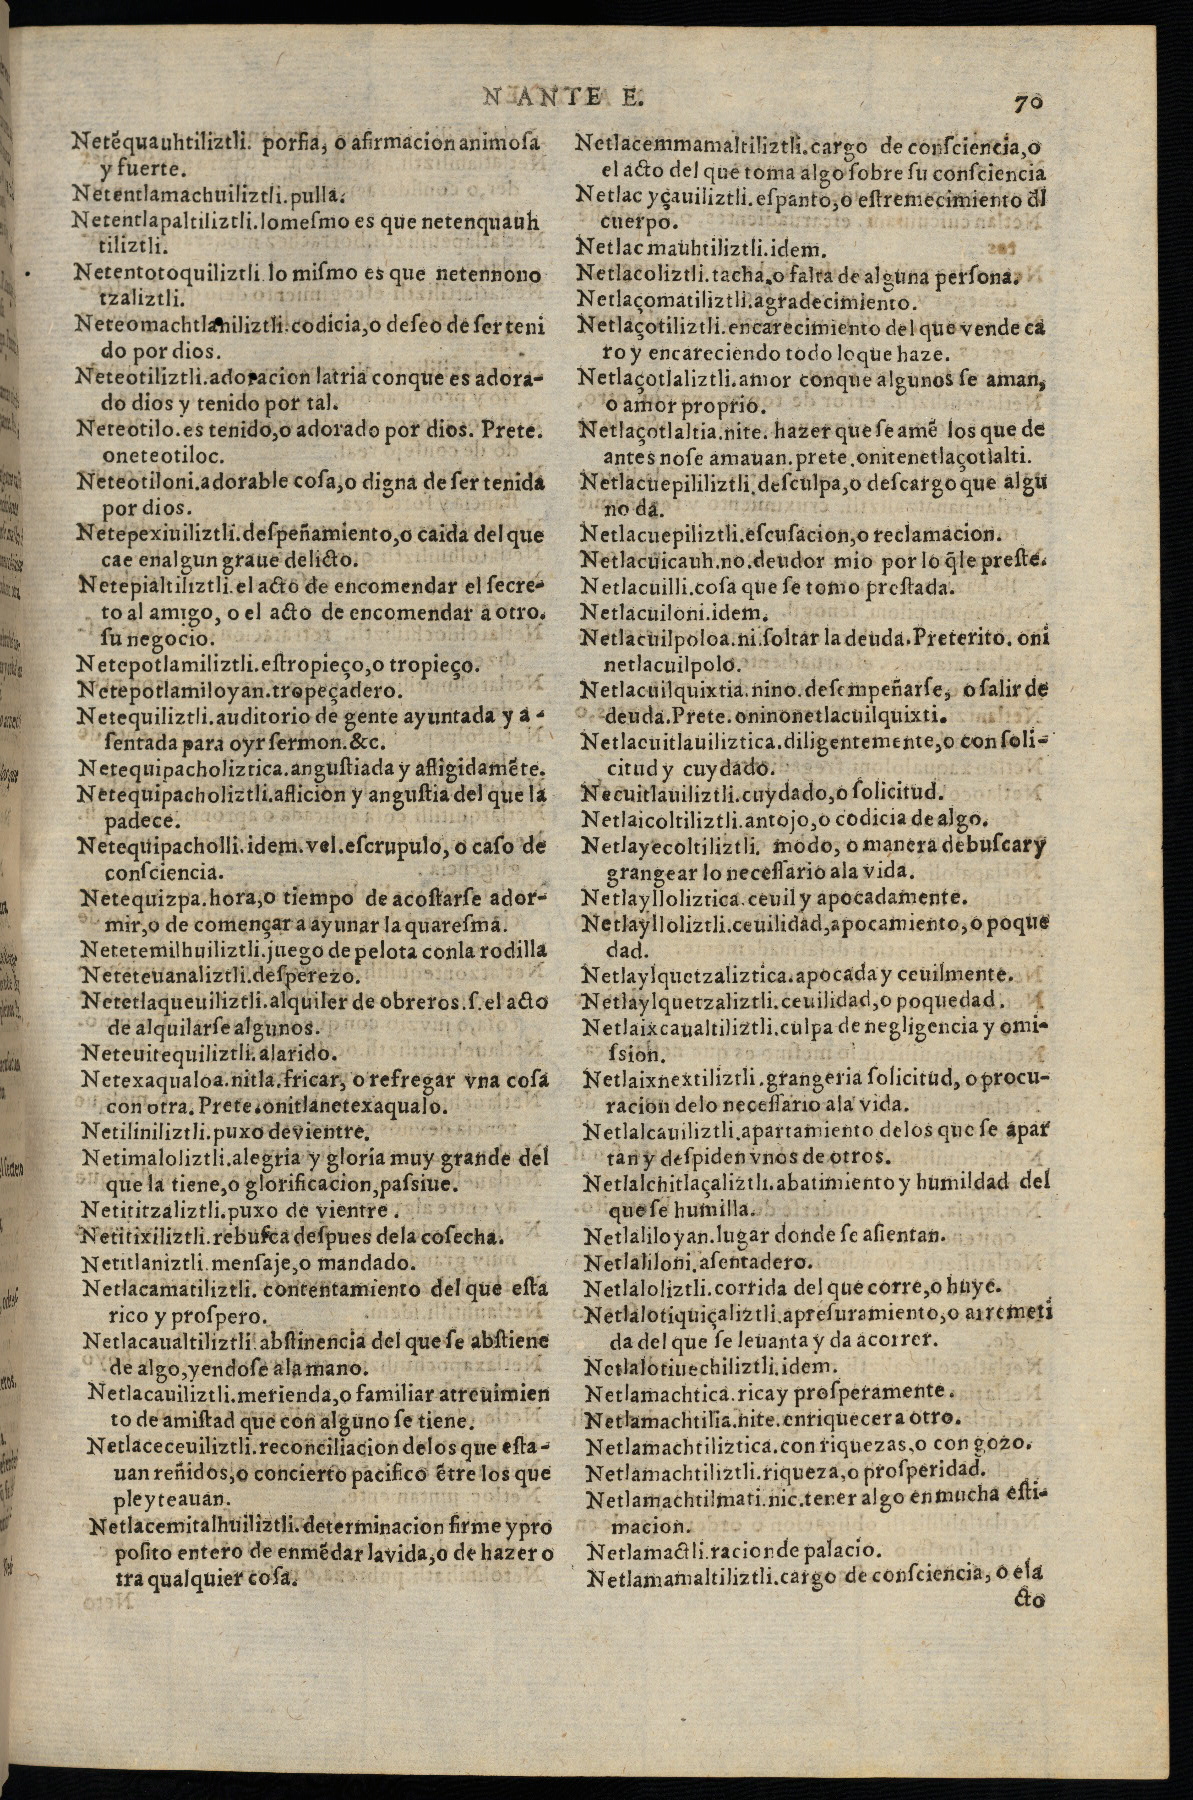 N ANTE E.
70
Netẽquauhtiliztli. porfia, o afirmacion animoſa
y fuerte.
Netentlamachuiliztli.pulla.
Netentlapaltiliztli.lomeſmo es que netenquauh
tiliztli.
Netentotoquiliztli.lo miſmo es que netennono
tzaliztli.
Neteomachtlaniliztli.codicia,o deſeo de ſer teni
do por dios.
Neteotiliztli.adoracion latria conque es adora-
do dios y tenido por tal.
Neteotilo.es tenido,o adorado por dios. Prete.
oneteotiloc.
Neteotiloni.adorable coſa,o digna de ſer tenida
por dios.
Netepexiuiliztli.deſpeñamiento,o caida del que
cae enalgun graue delicto.
Netepialtiliztli.el acto de encomendar el ſecre-
to al amigo, o el acto de encomendar a otro.
ſu negocio.
Netepotlamiliztli.eſtropieço,o tropieço.
Netepotlamiloyan.tropeçadero.
Netequiliztli.auditorio de gente ayuntada y a-
ſentada para oyr ſermon.&c.
Netequipacholiztica.anguſtiada y afligidamẽte.
Netequipacholiztli.aflicion y anguſtia del que la
padece.
Netequipacholli.idem.vel.eſcrupulo, o caſo de
conſciencia.
Netequizpa.hora,o tiempo de acoſtarſe ador-
mir,o de començar a ayunar la quareſma.
Netetemilhuiliztli.juego de pelota conla rodilla
Neteteuanaliztli.deſperezo.
Netetlaqueuiliztli.alquiler de obreros.ſ.el acto
de alquilarſe algunos.
Neteuitequiliztli.alarido.
Netexaqualoa.nitla.fricar, o refregar vna coſa
con otra. Prete.onitlanetexaqualo.
Netiliniliztli.puxo devientre.
Netimaloliztli.alegria y gloria muy grande del
que la tiene,o glorificacion,paſsiue.
Netititzaliztli.puxo de vientre.
Netitixiliztli.rebuſca deſpues dela coſecha.
Netitlaniztli.menſaje,o mandado.
Netlacamatiliztli. contentamiento del que eſta
rico y proſpero.
Netlacaualtiliztli.abſtinencia del que ſe abſtiene
de algo,yendoſe ala mano.
Netlacauiliztli.merienda,o familiar atreuimien
to de amiſtad que con alguno ſe tiene.
Netlaceceuiliztli.reconciliacion delos que eſta-
uan reñidos,o concierto pacifico ẽtre los que
pleyteauan.
Netlacemitalhuiliztli.determinacion firme ypro
poſito entero de enmẽdar lavida,o de hazer o
tra qualquier coſa.
Netlacemmamaltiliztli.cargo de conſciencia,o
el acto del que toma algo ſobre ſu conſciencia
Netlac yçauiliztli.eſpanto,o eſtremecimiento đl
cuerpo.
Netlac mauhtiliztli.idem.
Netlacoliztli.tacha.o falta de alguna perſona.
Netlaçomatiliztli.agradecimiento.
Netlaçotiliztli.encarecimiento del que vende ca
ro y encareciendo todo loque haze.
Netlaçotlaliztli.amor conque algunos ſe aman,
o amor proprio.
Netlaçotlaltia.nite. hazer que ſe amẽ los que de
antes noſe amauan.prete.onitenetlaçotlalti.
Netlacuepililiztli.deſculpa,o deſcargo que algu
no da.
Netlacuepiliztli.eſcuſacion,o reclamacion.
Netlacuicauh.no.deudor mio por lo q̃le preſte.
Netlacuilli.coſa que ſe tomo preſtada.
Netlacuiloni.idem.
Netlacuilpoloa.ni.ſoltar la deuda.Preterito. oni
netlacuilpolo.
Netlacuilquixtia.nino.deſempeñarſe, o ſalir de
deuda.Prete.oninonetlacuilquixti.
Netlacuitlauiliztica.diligentemente,o con ſoli-
citud y cuydado.
Necuitlauiliztli.cuydado,o ſolicitud.
Netlaicoltiliztli.antojo,o codicia de algo.
Netlayecoltiliztli. modo, o manera de buſcar y
grangear lo neceſſario ala vida.
Netlaylloliztica.ceuil y apocadamente.
Netlaylloliztli.ceuilidad,apocamiento,o poque
dad.
Netlaylquetzaliztica.apocada y ceuilmente.
Netlaylquetzaliztli.ceuilidad,o poquedad.
Netlaixcaualtiliztli.culpa de negligencia y omi-
ſsion.
Netlaixnextiliztli.grangeria ſolicitud, o procu-
racion delo neceſſario ala vida.
Netlalcauiliztli.apartamiento delos que ſe apar
tan y deſpiden vnos de otros.
Netlalchitlaçaliztli.abatimiento y humildad del
que ſe humilla.
Netlaliloyan.lugar donde ſe aſientan.
Netlaliloni.aſentadero.
Netlaloliztli.corrida del que corre,o huye.
Netlalotiquiçaliztli.apreſuramiento,o arremeti
da del que ſe leuanta y da acorrer.
Netlalotiuechiliztli.idem.
Netlamachtica.rica y proſperamente.
Netlamachtilia.nite.enriquecer a otro.
Netlamachtiliztica.con riquezas,o con gozo.
Netlamachtiliztli.riqueza,o proſperidad.
Netlamachtilmati.nic.tener algo en mucha eſti-
macion.
Netlamactli.racion de palacio.
Netlamamaltiliztli.cargo de conſciencia, o el a
cto